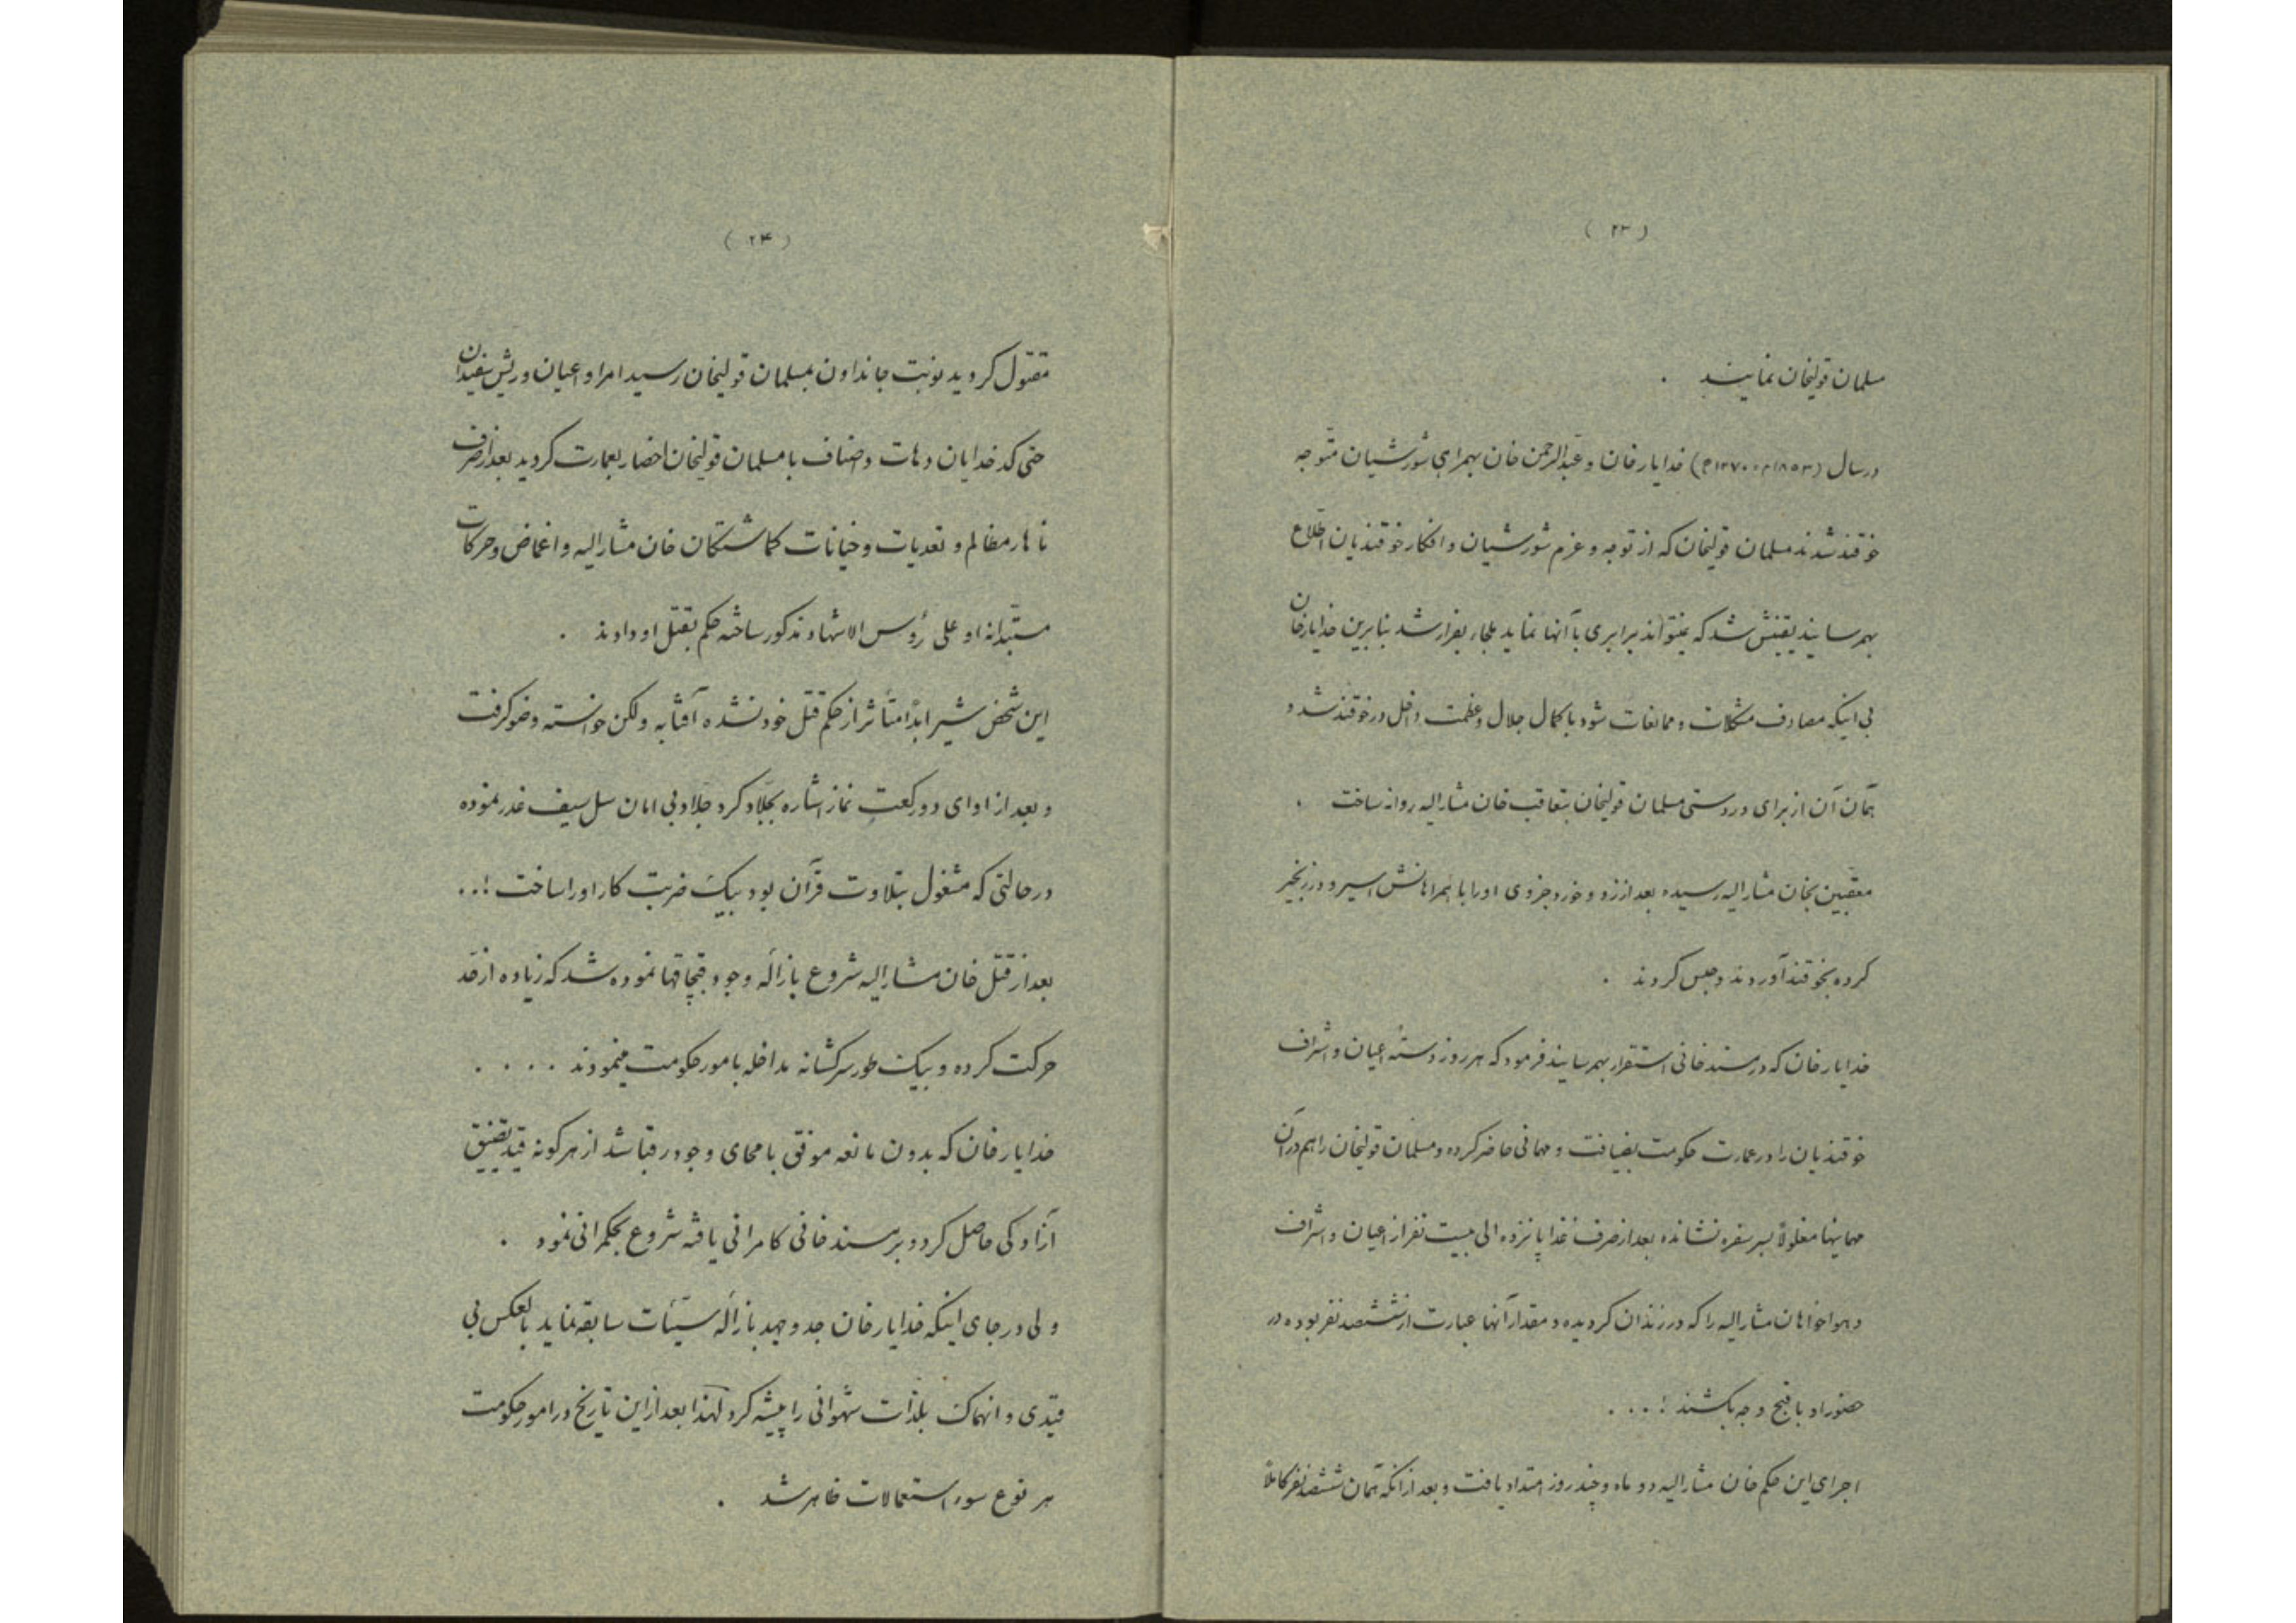 ( ۲۳ )
مسلمان قولیخان نمایند .
درسال (۱۸۵۳م ۱۲۷۰ه) خدایار خان و عبدالرحمن خان بهمراهی شورشیان متوجه
خوقند شدند مسلمان قولیخان که از توجه و عزم شورشیان و افکار خوقندیان اطلاع
بهمرسانید یقینش شد که نمیتواند برابری با آنها نماید ملجاء بفرار شد بنابرین خدایار خان
بی اینکه مصادف مشکلات و ممانعات شود با کمال جلال و عظمت داخل در خوقند شد و
همان آن از برای دردستی مسلمان قولیخان بتعاقب خان مشارالیه روانه ساخت .
معقبین بخان مشارالیه رسیده بعد از زد و خورد جزوی اورا با همراهانش اسیر و در زنجیر
کرده بخوقند آوردند و حبس کردند .
خدایار خان که در مسند خانی استقرار بهمرسانید فرمود که هر روز دسته اعیان و اشراف
خوقندیان را در عمارت حکومت بضیافت و مهمانی حاضر کرده و مسلمان قولیخان را هم در آن
مهمانیها مغلولاً بسر سفره نشانده بعد از صرف غذا پانزده الی بیست نفر از اعیان و اشراف
و هواخواهان مشارالیه را که در زندان کردیده و مقدار آنها عبارت از ششصد نفر بوده در
حضور او باقبح وجه بکشند !...
اجرای این حکم خان مشارالیه دو ماه و چند روز امتداد یافت و بعد از آنکه همان ششصد نفر کاملاً
( ۲۴ )
مقتول کردید نوبت جاندادن بمسلمان قولیخان رسید امرا و اعیان و ریش سفیدان
حتی کدخدایان دهات و اصناف با مسلمان قولیخان احضار بعمارت کردید بعد از صرف
ناهار مظالم و تعدیات و خیانات کماشتکان خان مشارالیه و اغماض و حرکات
مستبدانه او علی رؤس الاشهاد مذکور ساخته حکم بقتل او دادند .
این شخص شیر ابداً متأثر از حکم قتل خود نشده آفتابه و لکن خواسته وضو کرفت
و بعد از ادای دو رکعت نماز اشاره بجلاد کرد جلاد بی امان سل سیف غدر نموده
درحالتی که مشغول بتلاوت قرآن بود بیک ضربت کار اورا ساخت !..
بعد از قتل خان مشارالیه شروع بازاله وجود قبچاقها نموده شد که زیاده از حد
حرکت کرده و بیک طور سرکشانه مداخله بامور حکومت مینمودند . . . .
خدایار خان که بدون مانعه موفق بامحای وجود رقبا شد از هر کونه قید تضییق
آزادکی حاصل کرد و بر مسند خانی کامرانی یافته شروع بحکمرانی نمود .
ولی در جای اینکه خدایار خان جد و جهد بازاله سیئات سابقه نماید بالعکس بی
قیدی و انهماک بلذات شهوانی را پیشه کرد لهذا بعد از این تاریخ در امور حکومت
هر نوع سوء استعمالات ظاهر شد .